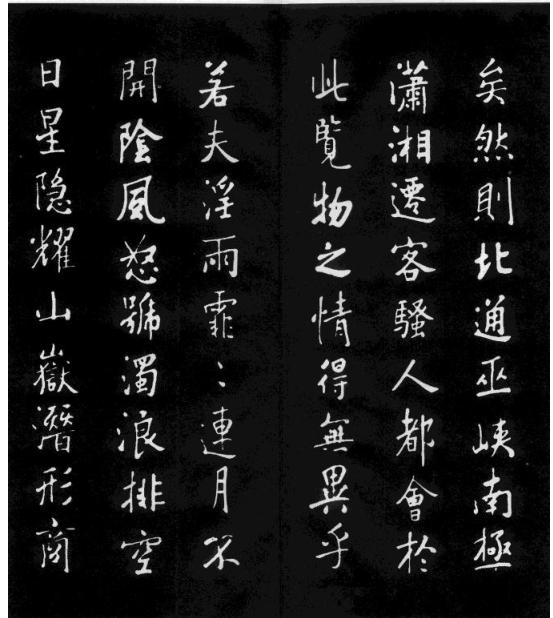 矣然則北通巫峽南極
瀟湘遷客騷人都會於
此覽物之情得無異乎
若夫淫雨霏〻連月不
開陰風怒號濁浪排空
日星隐耀山嶽潛形商